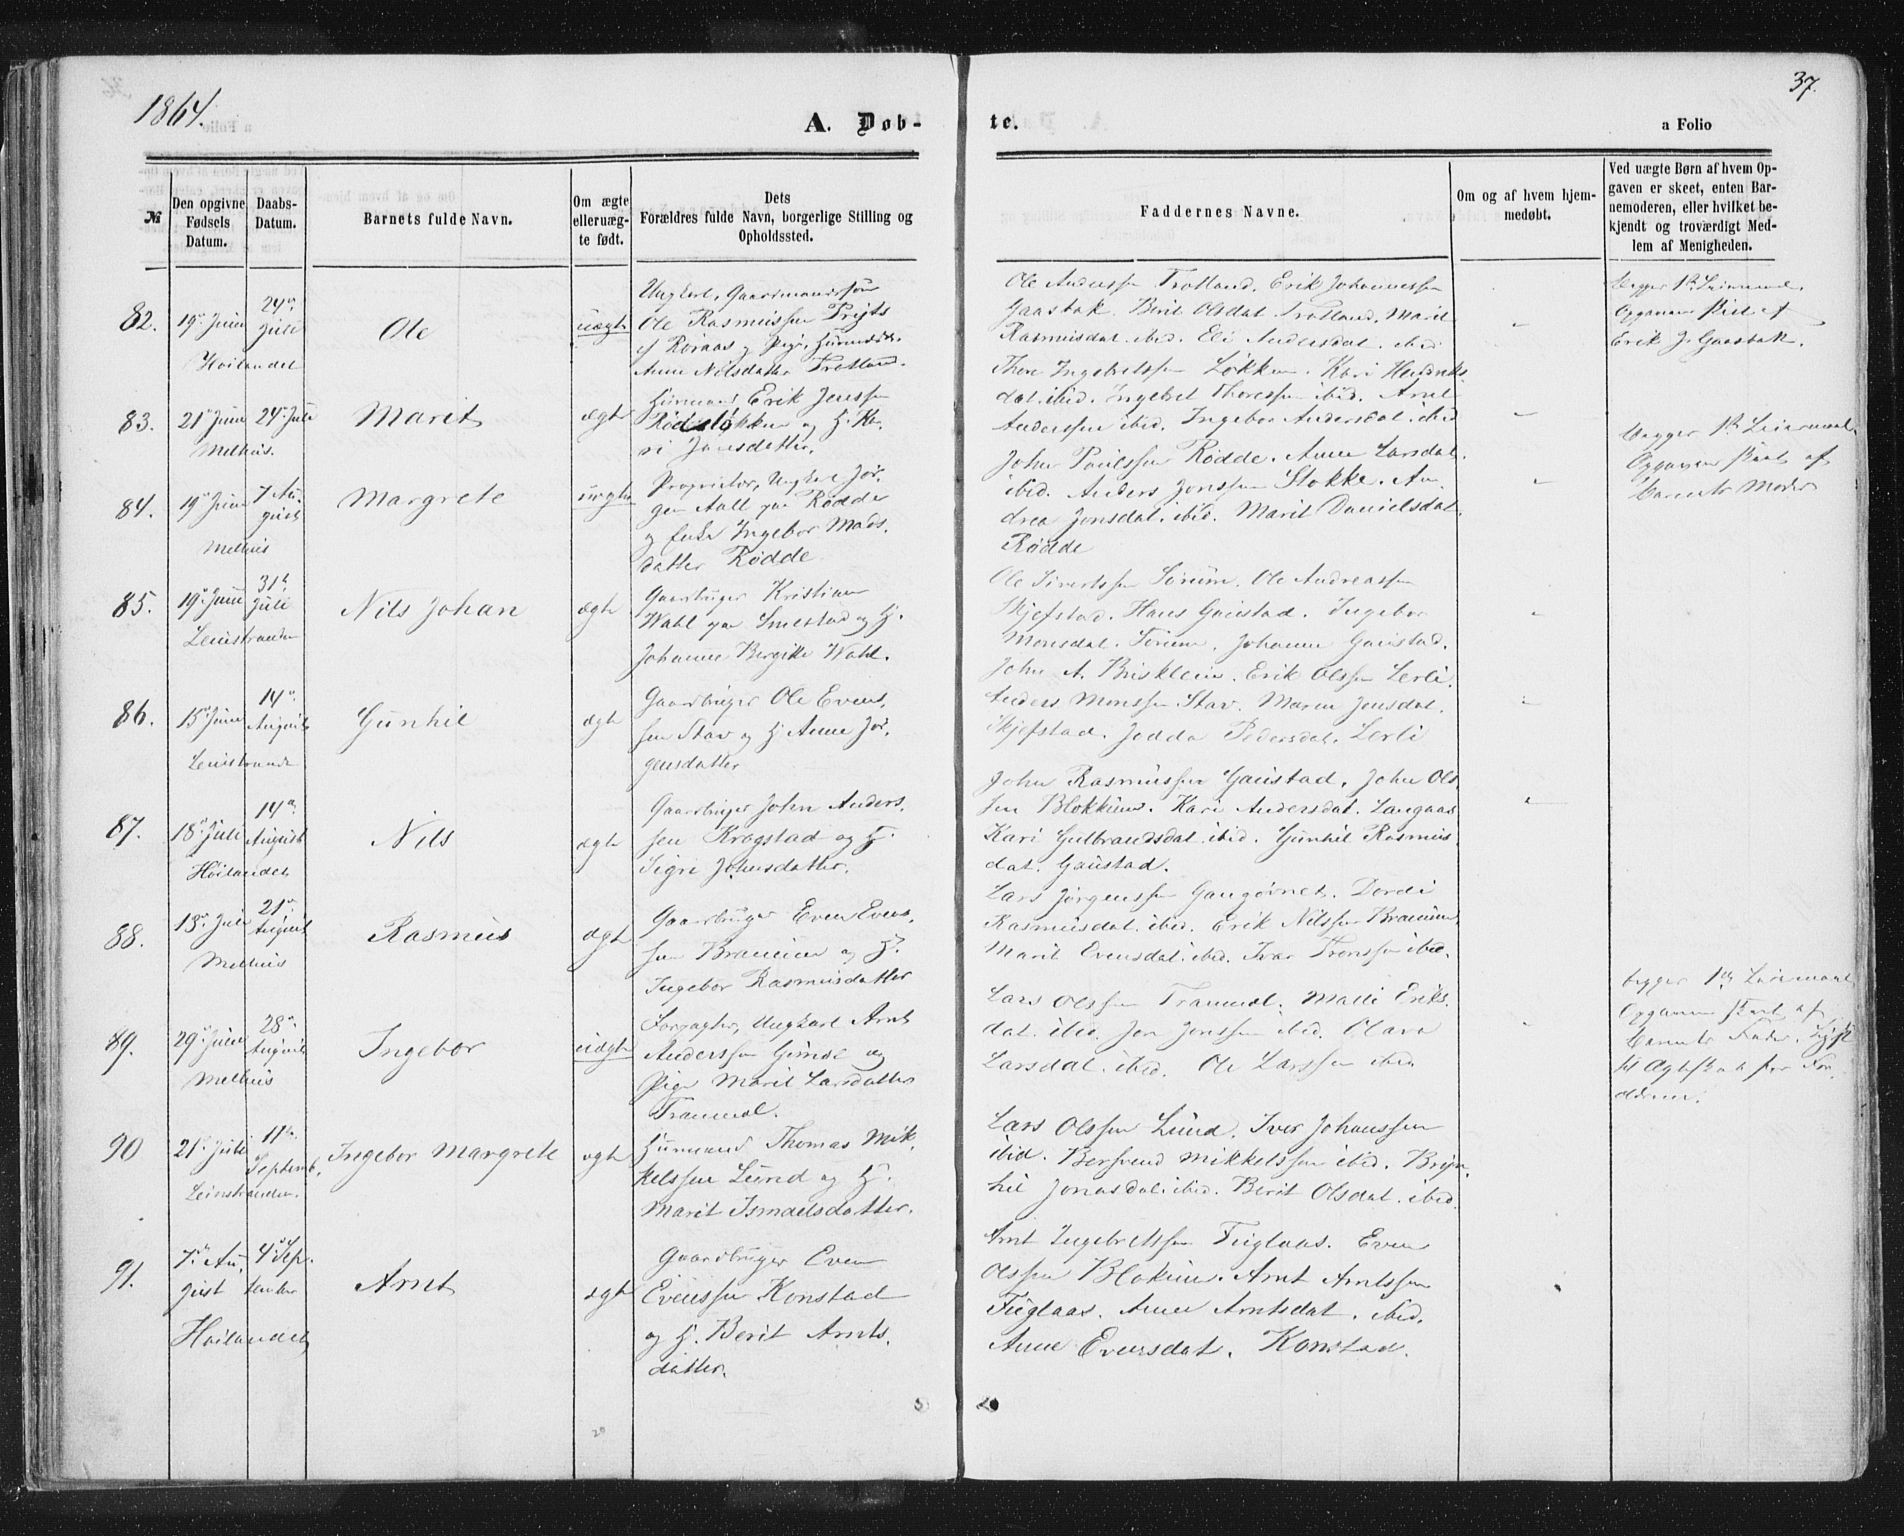 1864.
37.
A. Døb-
te.
a Folio
№
Den opgivne Fødsels Datum.
Daabs-Datum.
Barnets fulde Navn.
Om ægte elleruægte født.
Dets
Forældres fulde Navn, borgerlige Stilling og
Opholdssted.
Faddernes Navne.
Om og af hvem hjem-
medøbt.
Ved uægte Børn af hvem Op-
gaven er skeet, enten Bar-
nemoderen, eller hvilket be-
kjendt og troværdigt Med-
lem af Menigheden.
82.
19de Juni
Høilandet
24de
Juli
Ole
uægte
Ungkarl, Gaardmandssøn
Ole Rasmussen
Roraas og Pige,
Anne Nilsdatter Trotland.
Ole Anderssen Trotland. Erik Johannessen
Gaasbak. Berit Olsdat. Trotland. Marit
Rasmusdat. ibid. Eli Andersdat. ibid
begges 1ste Leiermaal.
Opgaven skeet af
Erik J. Gaasbak.
83.
21de Juni
Melhus.
24de Juli
Marit
ægte
Huusmand Erik Jenssen
Rødsløkken og H. Ka-
ri Jonsdatter.
Thore Ingebretssen Løkken. Kari
dat. ibid. Ingebret Thoressen ibid. Arnt
Anderssen ibid. Ingebor Andersdat. ibid
84.
19de Juni
Melhus
7 Au-
gust
Margrete
uægte
Proprietær, Ungkarl Jør-
gen Aall paa Rødde
og Enke Ingebor Mads-
datter Rødde
John Paulssen Rødde. Anne Larsdat.
ibid. Anders Jonssen Stokke. An-
drea Jonsdat. ibid. Marit Danielsdat.
Rødde
begges 1ste Leiermaal.
Opgaven skeet af
Barnets Moder
85.
19de Juni
Leinstranden
31te
Juli
Nils Johan
ægte
Gaardbruger Kristian
Wahl paa Smestad og H.
Johanne Birgitte Wahl.
Ole Sivertssen Sørum. Ole Andreassen
Skjefstad. Hans Gaustad. Ingebor
Monsdat. Sørum. Johanne Gaustad.
86.
15de Juni
Leinstranden
14de
August
Gunhil
ægte
Gaardbruger Ole Evens-
sen Stav og H. Anne Jør-
gensdatter
John A. Brisklein. Erik Olssen Lerli.
Anders Monssen Stav. Maren Jensdat.
Skjefstad. Jedda Pedersdat. Lerli
87.
18de Juli
Høilandet
14de
August
Nils
ægte
Gaardbruger John Anders-
sen Krogstad og H.
Sigri Johnsdatter.
John Rasmussen Gaustad. John Ols-
sen Blokkum. Kari Andersdat. Langaas
Kari Gulbrandsdat. ibid. Gunhil Rasmus-
dat. Gaustad.
88.
13de Juli
Melhus
21de
August
Rasmus
ægte
Gaardbruger Even Evens-
sen Braneien og H.
Ingebor Rasmusdatter
Lars Jørgenssen Gangørnet. Dordi
Rasmusdat. ibid. Erik Nilssen
Marit Evensdat. ibid. Ivar Tronssen ibid.
89.
29de Juli
Melhus
28de
August
Ingebor
uægte
Forpagter, Ungkarl Arnt
Anderssen Gimse og
Pige Marit Larsdatter
Tranmæl.
Lars Olssen Tranmæl. Malli Eriks-
dat. ibid. Jon Jonssen ibid. Olava
Larsdat. ibid. Ole Larssen ibid.
begges 1ste Leiermaal
Opgaven skeet af
Barnets Fader. Lyst
til Ægteskab for For-
ældrene.
90
21de Juli
Leinstranden.
11te
Septemb.
Ingebor Margrete
ægte
Huusmand Thomas Mik-
kelssen Lund og H.
Marit Ismaelsdatter.
Lars Olssen Lund. Iver Johanssen
ibid. Bersvend Mikkelssen ibid. Bryn-
hil Jonasdat. ibid. Berit Olsdat. ibid.
91.
7de Au-
gust
Høilandet
4de Sep-
tember
Arnt
ægte
Gaardbruger Even
Evenssen Konstad
og H. Berit Arnts-
datter.
Arnt Ingebretssen Fuglaas. Even
Olssen Blokum. Arnt Arntssen
Fuglaas. Anne Arntsdat. ibid.
Anne Evensdat. Konstad.